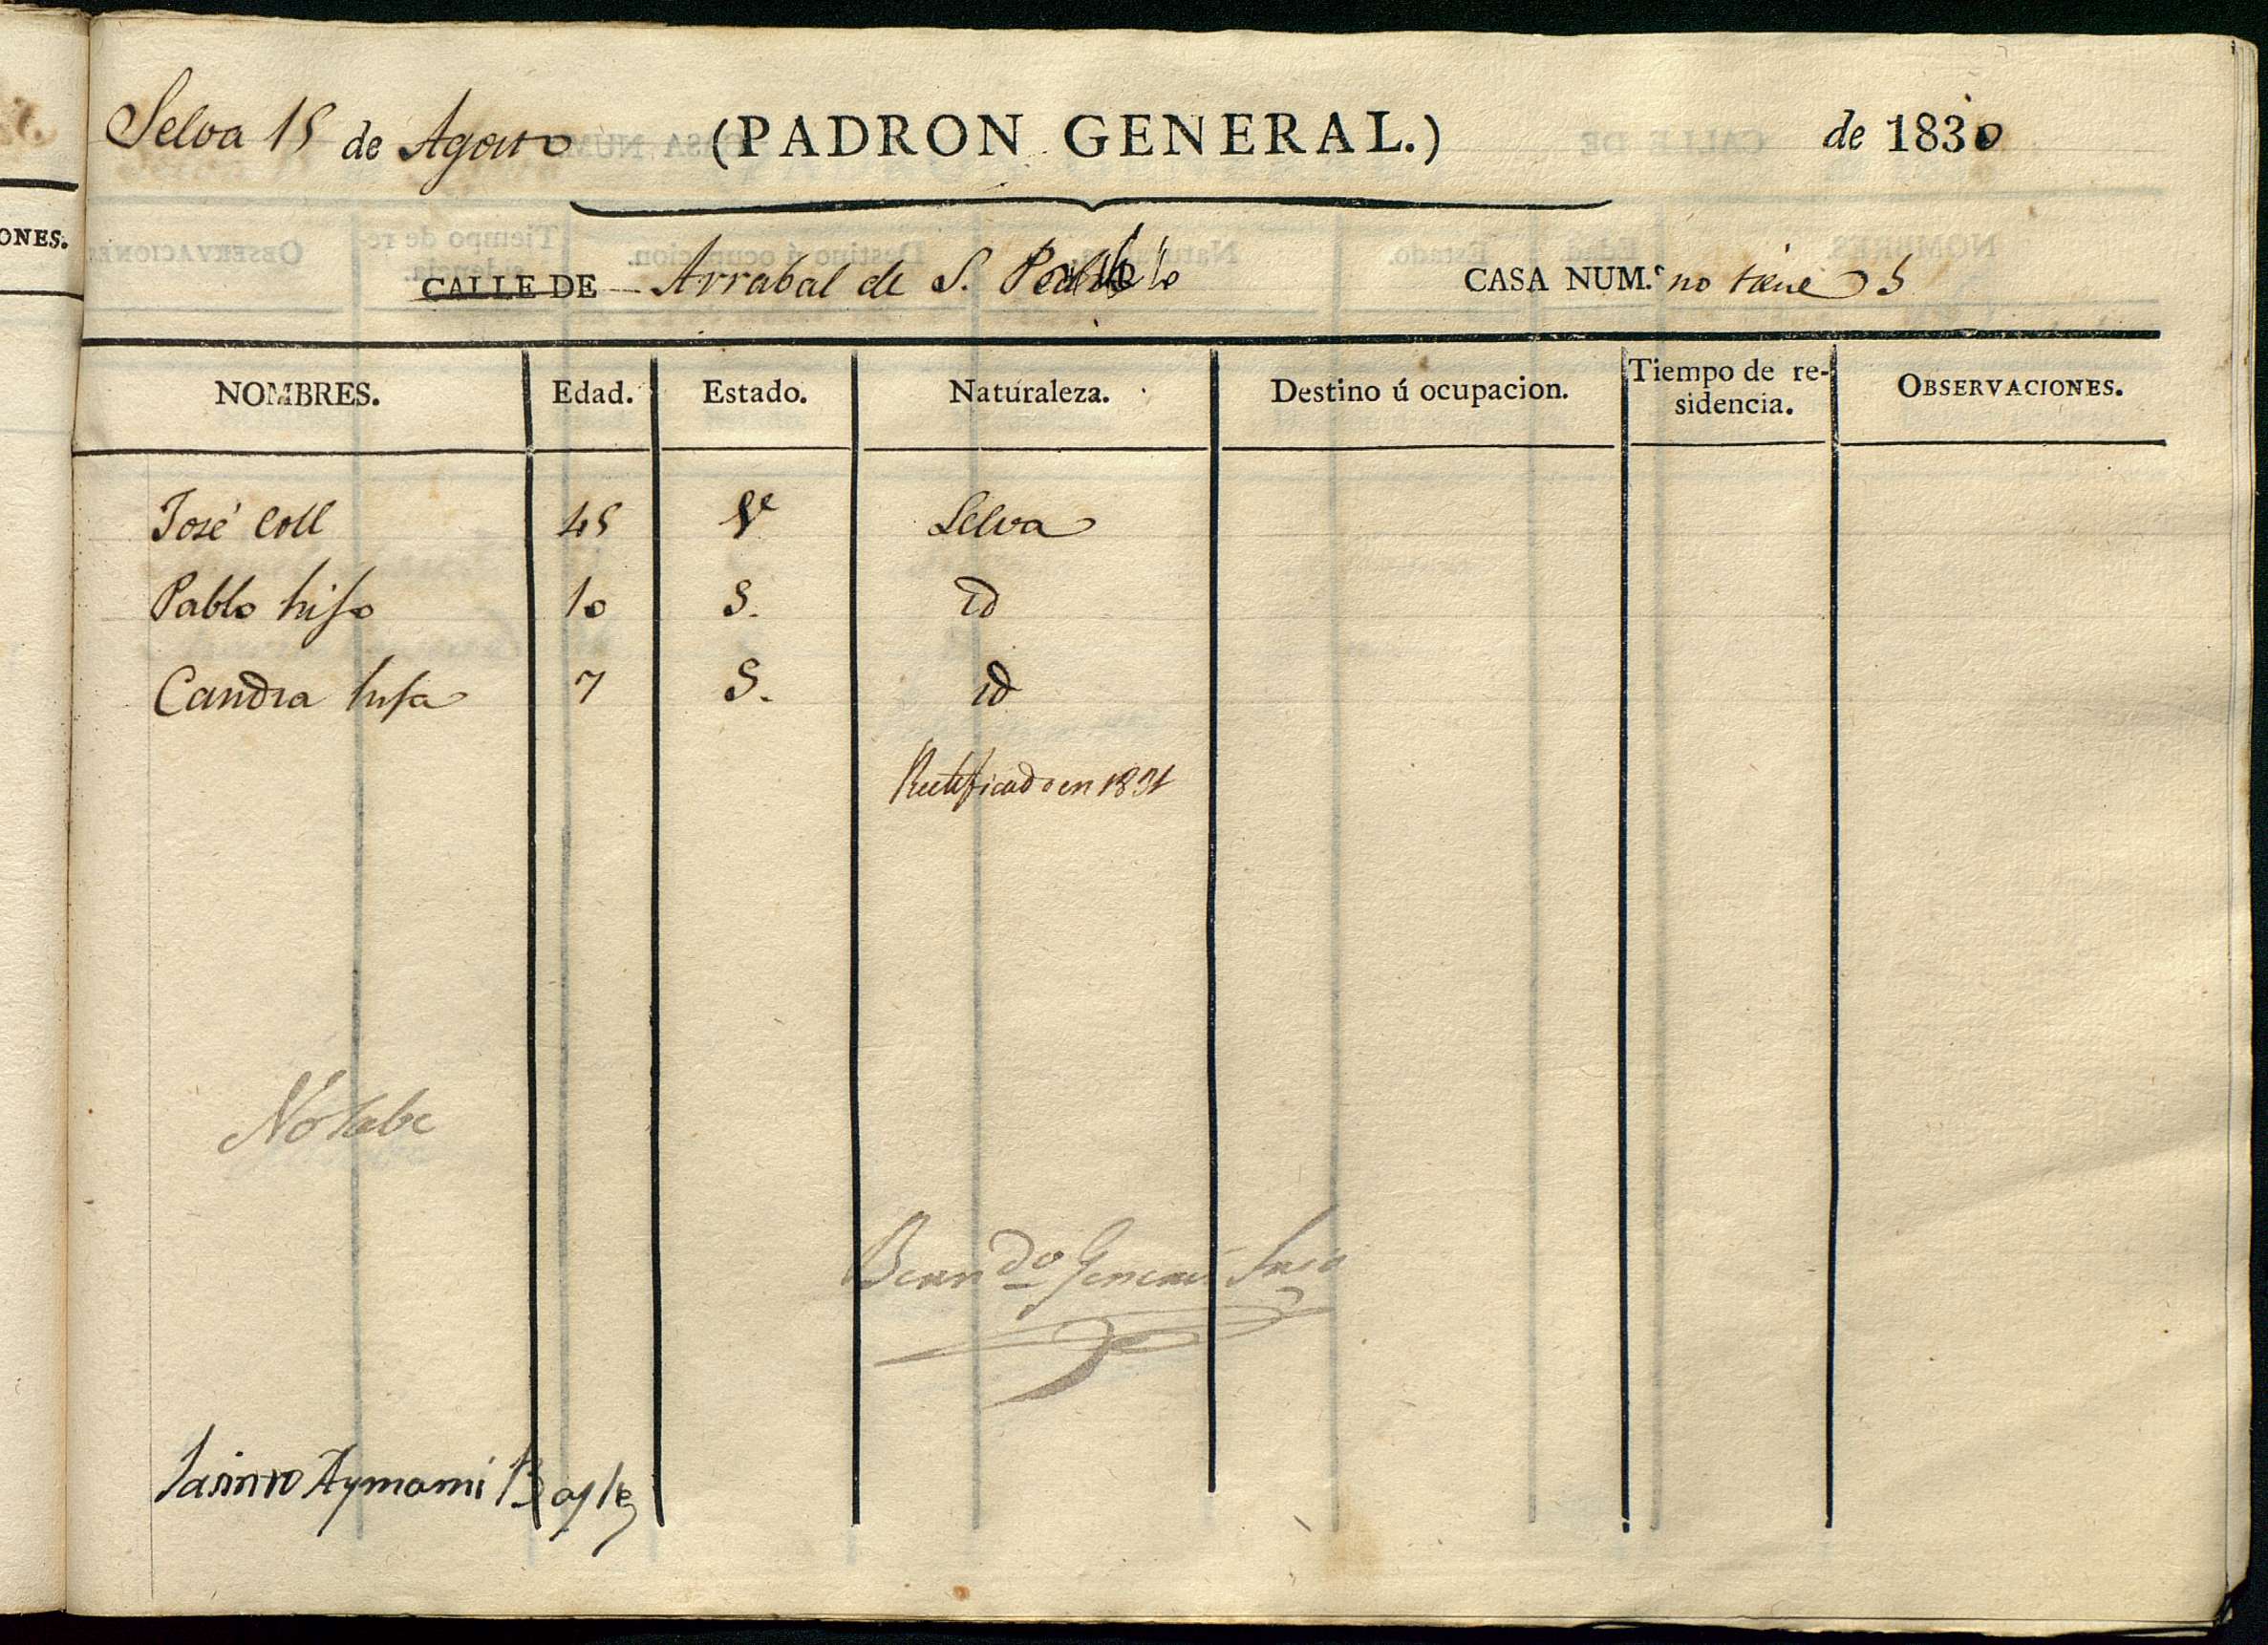 Selva 15 de Agosto (PADRON GENERAL.) de 1830
CALLE DE Arrabal de S. Pablo CASA NUM.º no tiene 5
NOMBRES. Edad. Estado. Naturaleza. Destino ú ocupacion. Tiempo de re-sidencia. OBSERVACIONES.
José Coll 45 Vº Selva
Pablo hijo 10 S. id
Candia hija 7 S. id
Rectificado en 1831
No sabe
Berndo Srio
Jasinto Aymami Bayle
ONES.